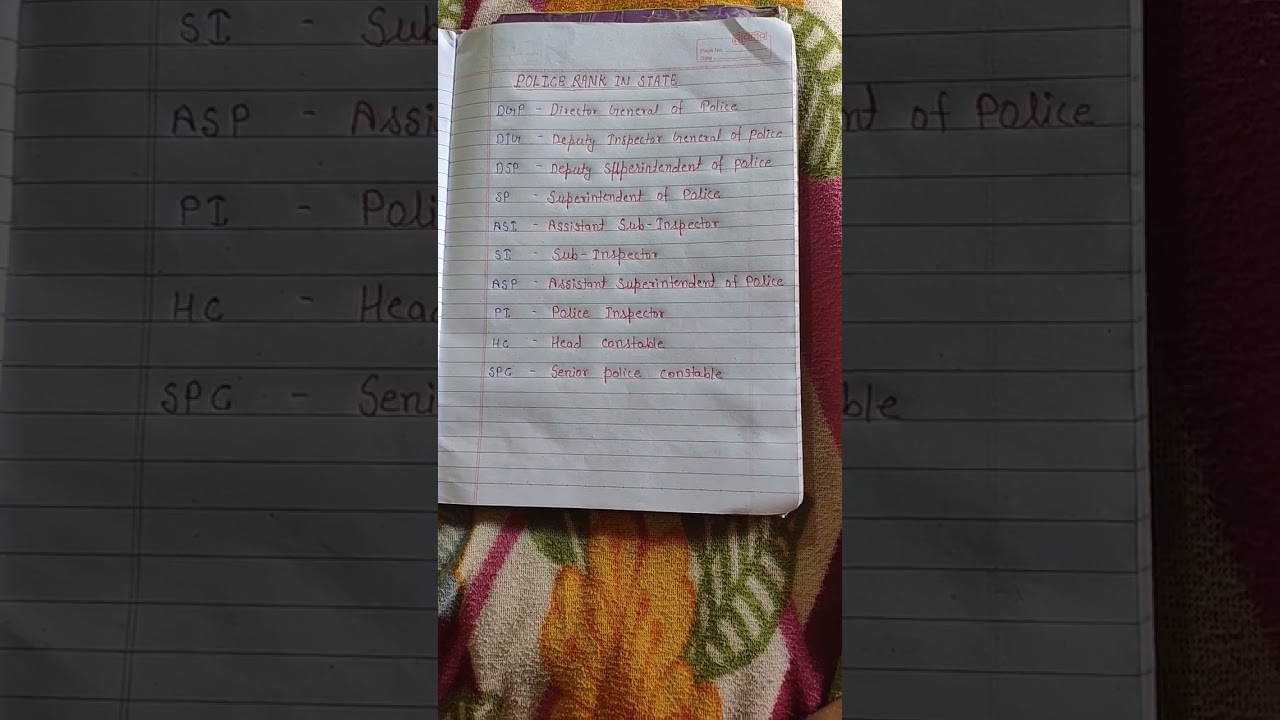 POLICE RANK IN STATE
DGP - Director General of Police
DIG - Deputy Inspector General of Police
DSP - Deputy Superintendent of police
SP - Superintendent of Police
ASI - Assistant Sub-Inspector
SI - Sub-Inspector
ASP - Assistant Superintendent of Police
PI - Police Inspector
HC - Head constable
SPC - Senior police constable
Page No.
Date
SI - Sub
ASP - Assi
nt of Police
PI - Poli
HC - Head
SPC - Seni
ble